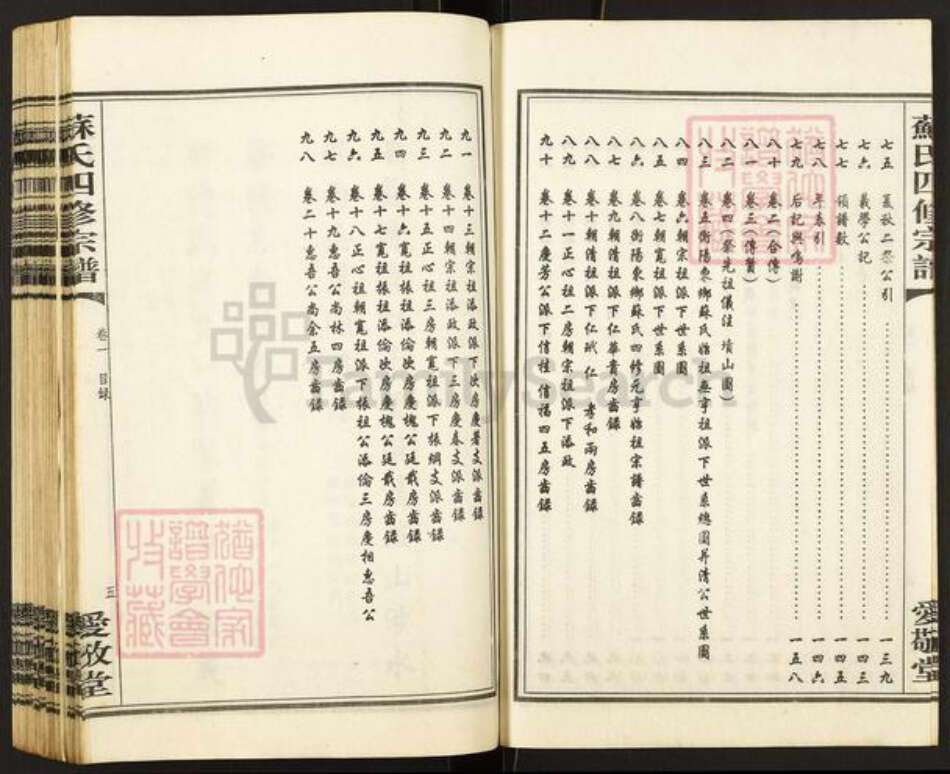 蘇氏四修宗譜
愛敬堂
七五 夏秋二祭公引 一三九
七六 義學公記 一四三
七七 領譜數 一四五
七八 年表引 一四六
七九 后記與鳴謝 一五八
八十 卷二(合傳)
八一 卷三(傳贊)
八二 卷四(祭先祖儀注 墳山圖)
八三 卷五衡陽東鄉蘇氏始祖無亨祖派下世系總圖并清公世系圖
八四 卷六朝宗祖派下世系圖
八五 卷七朝寬祖派下世系圖
八六 卷八衡陽東鄉蘇氏四修元亨始祖宗譜齒錄
八七 卷九朝清祖派下仁華貴房齒錄
八八 卷十朝清祖派下仁玳 仁 孝和兩房齒錄
八九 卷十一正心祖二房朝宗祖派下添政
九十 卷十二慶芳公派下信桂 信福四五房齒錄
九一 卷十三朝宗祖添政派下次房慶著支派齒錄
九二 卷十四朝宗祖添政派下三房慶春支派齒錄
九三 卷十五正心祖三房朝寬祖派下振綱支派齒錄
九四 卷十六寬祖振祖添倫次房慶槐公廷 房齒錄
九五 卷十七寬祖振祖添倫次房慶槐公廷 房齒錄
九六 卷十八正心祖朝寬祖派下振祖公添倫三房慶相惠吾公
九七 卷十九惠吾公尚林四房齒錄
九八 卷二十惠吾公尚余五房齒錄
蘇氏四修宗譜
卷一 目錄
三
愛敬堂
FamilySearch